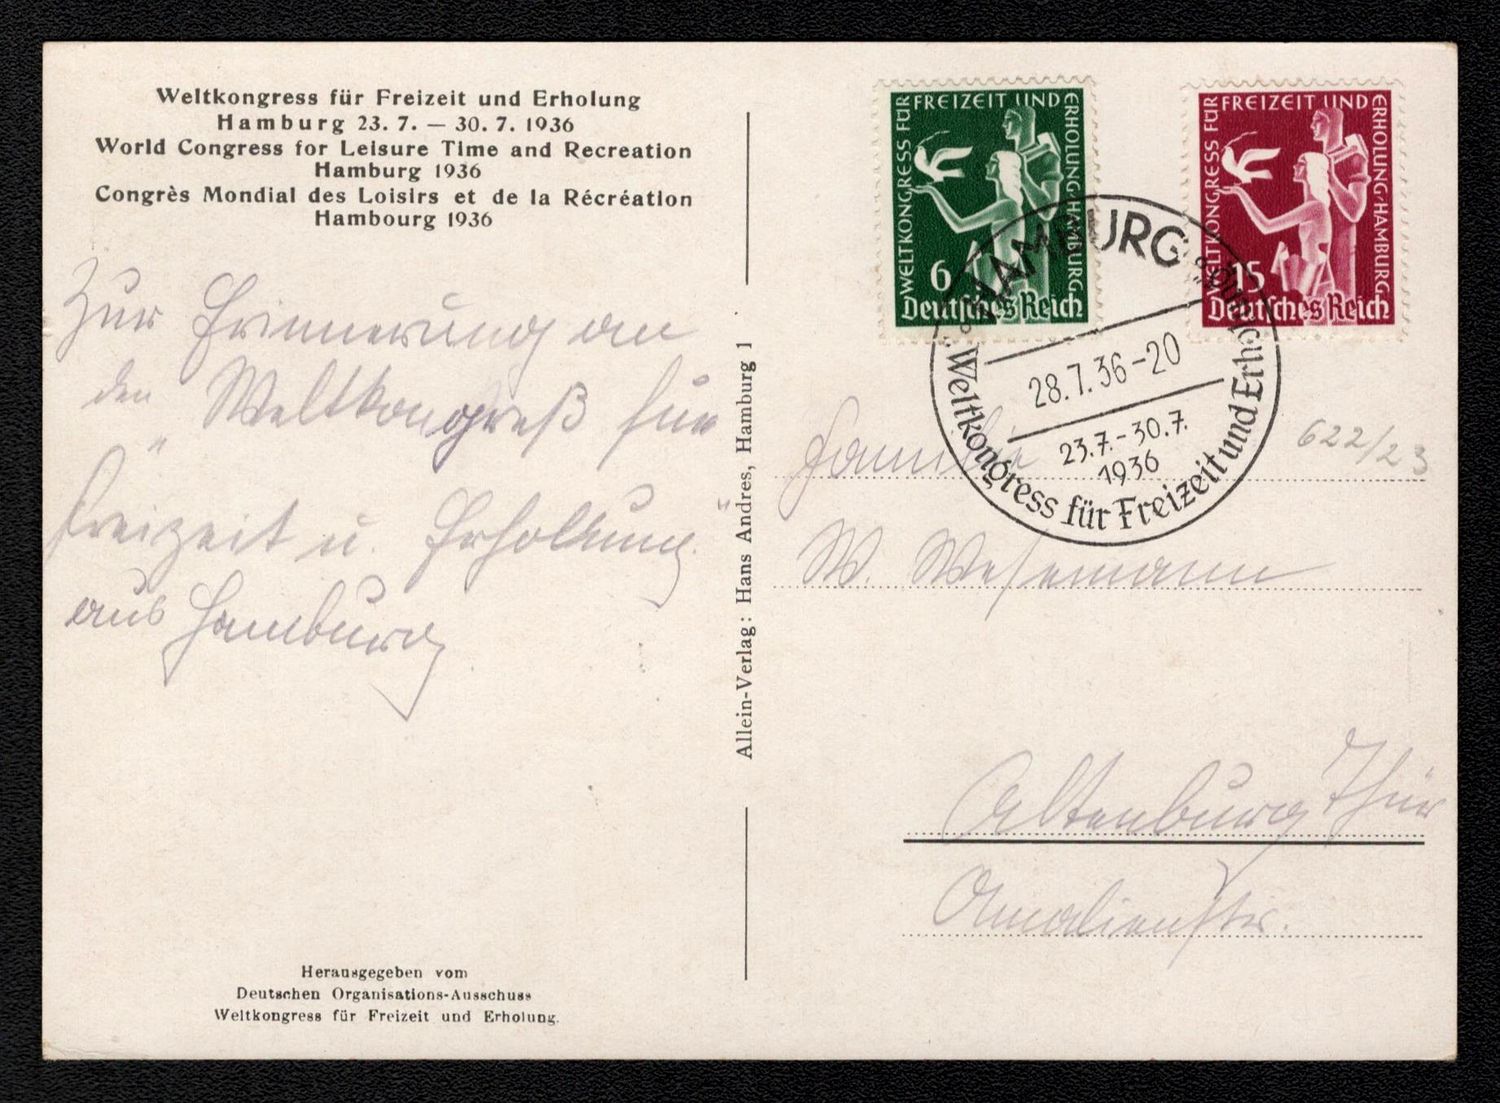 Weltkongress für Freizeit und Erholung
Hamburg 23. 7. — 30. 7. 1936
World Congress for Leisure Time and Recreation
Hamburg 1936
Congrès Mondial des Loisirs et de la Récréation
Hambourg 1936
Zur Erinnerung an
den "Weltkongreß für
Freizeit u. Erholung"
aus Hamburg
Herausgegeben vom
Deutschen Organisations-Ausschuss
Weltkongress für Freizeit und Erholung.
Allein-Verlag: Hans Andres, Hamburg 1
WELTKONGRESS FÜR FREIZEIT UND ERHOLUNG·HAMBURG
6
Deutsches Reich
WELTKONGRESS FÜR FREIZEIT UND ERHOLUNG·HAMBURG
15
Deutsches Reich
HAMBURG
28.7.36-20
23.7.-30.7.
1936
„Weltkongress für Freizeit und Erholung“
622/23
Familie
W. Wesemann
Altenburg Thür
Amalienstr.